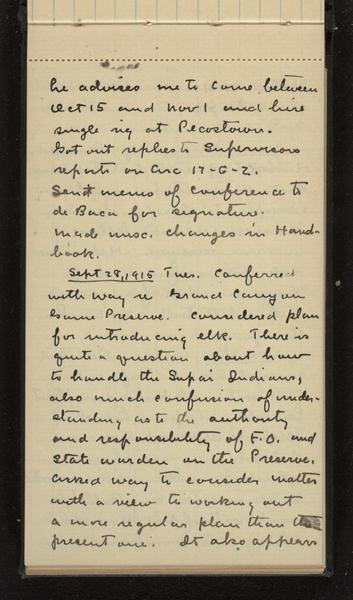 he advises me to come between
Oct 15 and Nov 1 and hire
single rig at Pecostown.
Got out replies to Supervisors
reports on Circ 17-G-2.
Sent memo of conference to
de Baca for signature.
Made misc. changes in Hand-
book.
Sept 28, 1915 Tues. Conferred
with Way re Grand Canyon
Game Preserve. Considered plan
for introducing elk. There is
quite a question about how
to handle the Supai Indians,
also much confusion of under-
standing as to the authority
and responsibility of F.O. and
State warden on the Preserve.
Asked Way to consider matter
with a view to working out
a more regular plan than the
present one. It also appears